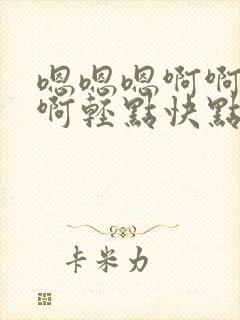 嗯嗯嗯啊啊
啊轻點快點
卡米力